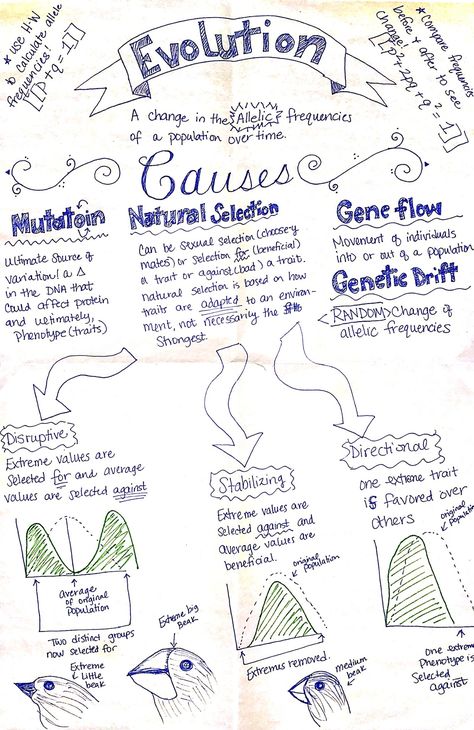 * use H-W
to calculate allele
frequencies!
[[P+q=1]]
Evolution
* Compare frequencies
before & after to see
change!
[P²+2pq+q²=1]
A change in the Allelic frequencies
of a population over time.
Causes
Mutatoin
ultimate source of
variation! a Δ
in the DNA that
could affect protein
and ultimately,
Phenotype (traits)
Natural Selection
Can be sexual selection (choosey
mates) or selection for (beneficial)
a trait or against (bad) a trait.
natural selection is based on how
traits are adapted to an environ-
ment, not necessarily the
Strongest.
Gene flow
Movement of individuals
into or out of a population
Genetic Drift
RANDOM Change of
allelic frequencies
Disruptive
Extreme values are
selected for and average
values are selected against
Average
of original
Population
Two distinct groups
now selected for
Extreme
Little
beak
Extreme big
Beak
Stabilizing
Extreme values are
selected against and
average values are
beneficial.
original
population
Extremes removed.
medium
beak
Directional
one extreme trait
is favored over
others
original
population
one extreme
Phenotype is
Selected
against